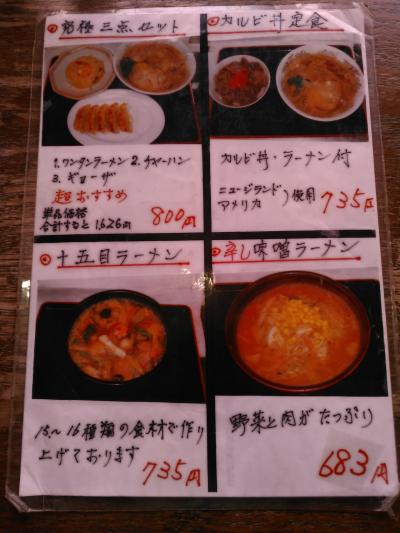 究極三点セット
1.ワンタンラーメン 2.チャーハン
3.ギョーザ
超おすすめ
単品価格
合計すると1626円
800円
カルビ丼定食
カルビ丼・ラーメン付
ニュージランド
アメリカ
)使用
735円
十五目ラーメン
15~16種類の食材で作り
上げております
735円
辛し味噌ラーメン
野菜と肉がたっぷり
683円